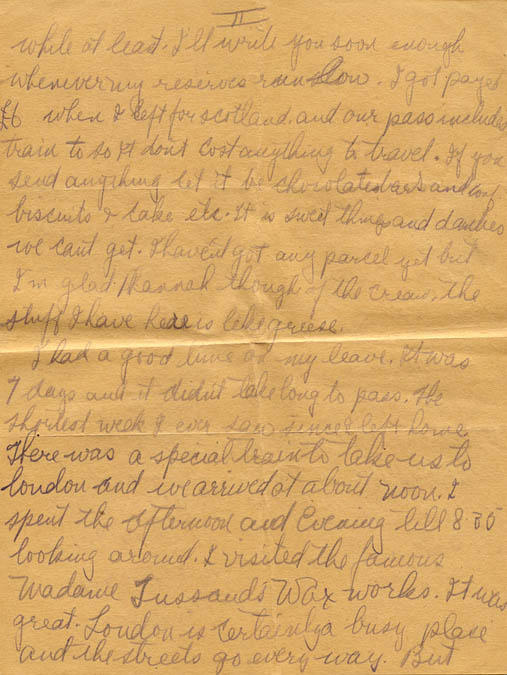 II
while at least. I'll write you soon enough
whenever my reserves run low. I got payed
£6 when I left for scotland, and our pass includes
train to so it dont cost anything to travel. If you
send anything let it be chocolate bars and
biscuits & cake etc. It is sweet things and dainties
we cant get. I havent got any parcel yet but
I'm glad Hannah though of the cream, the
stuff I have here is like griese.
I had a good time on my leave. It was
7 days and it didn't take long to pass. The
shortest week I ever saw since I left home
There was a special train to take us to
london and we arrived at about noon. I
spent the afternoon and Evening till 8:35
looking around. I visited the famous
Madame Tussands Wax works. It was
great. London is certainly a busy place
and the streets go every way. But